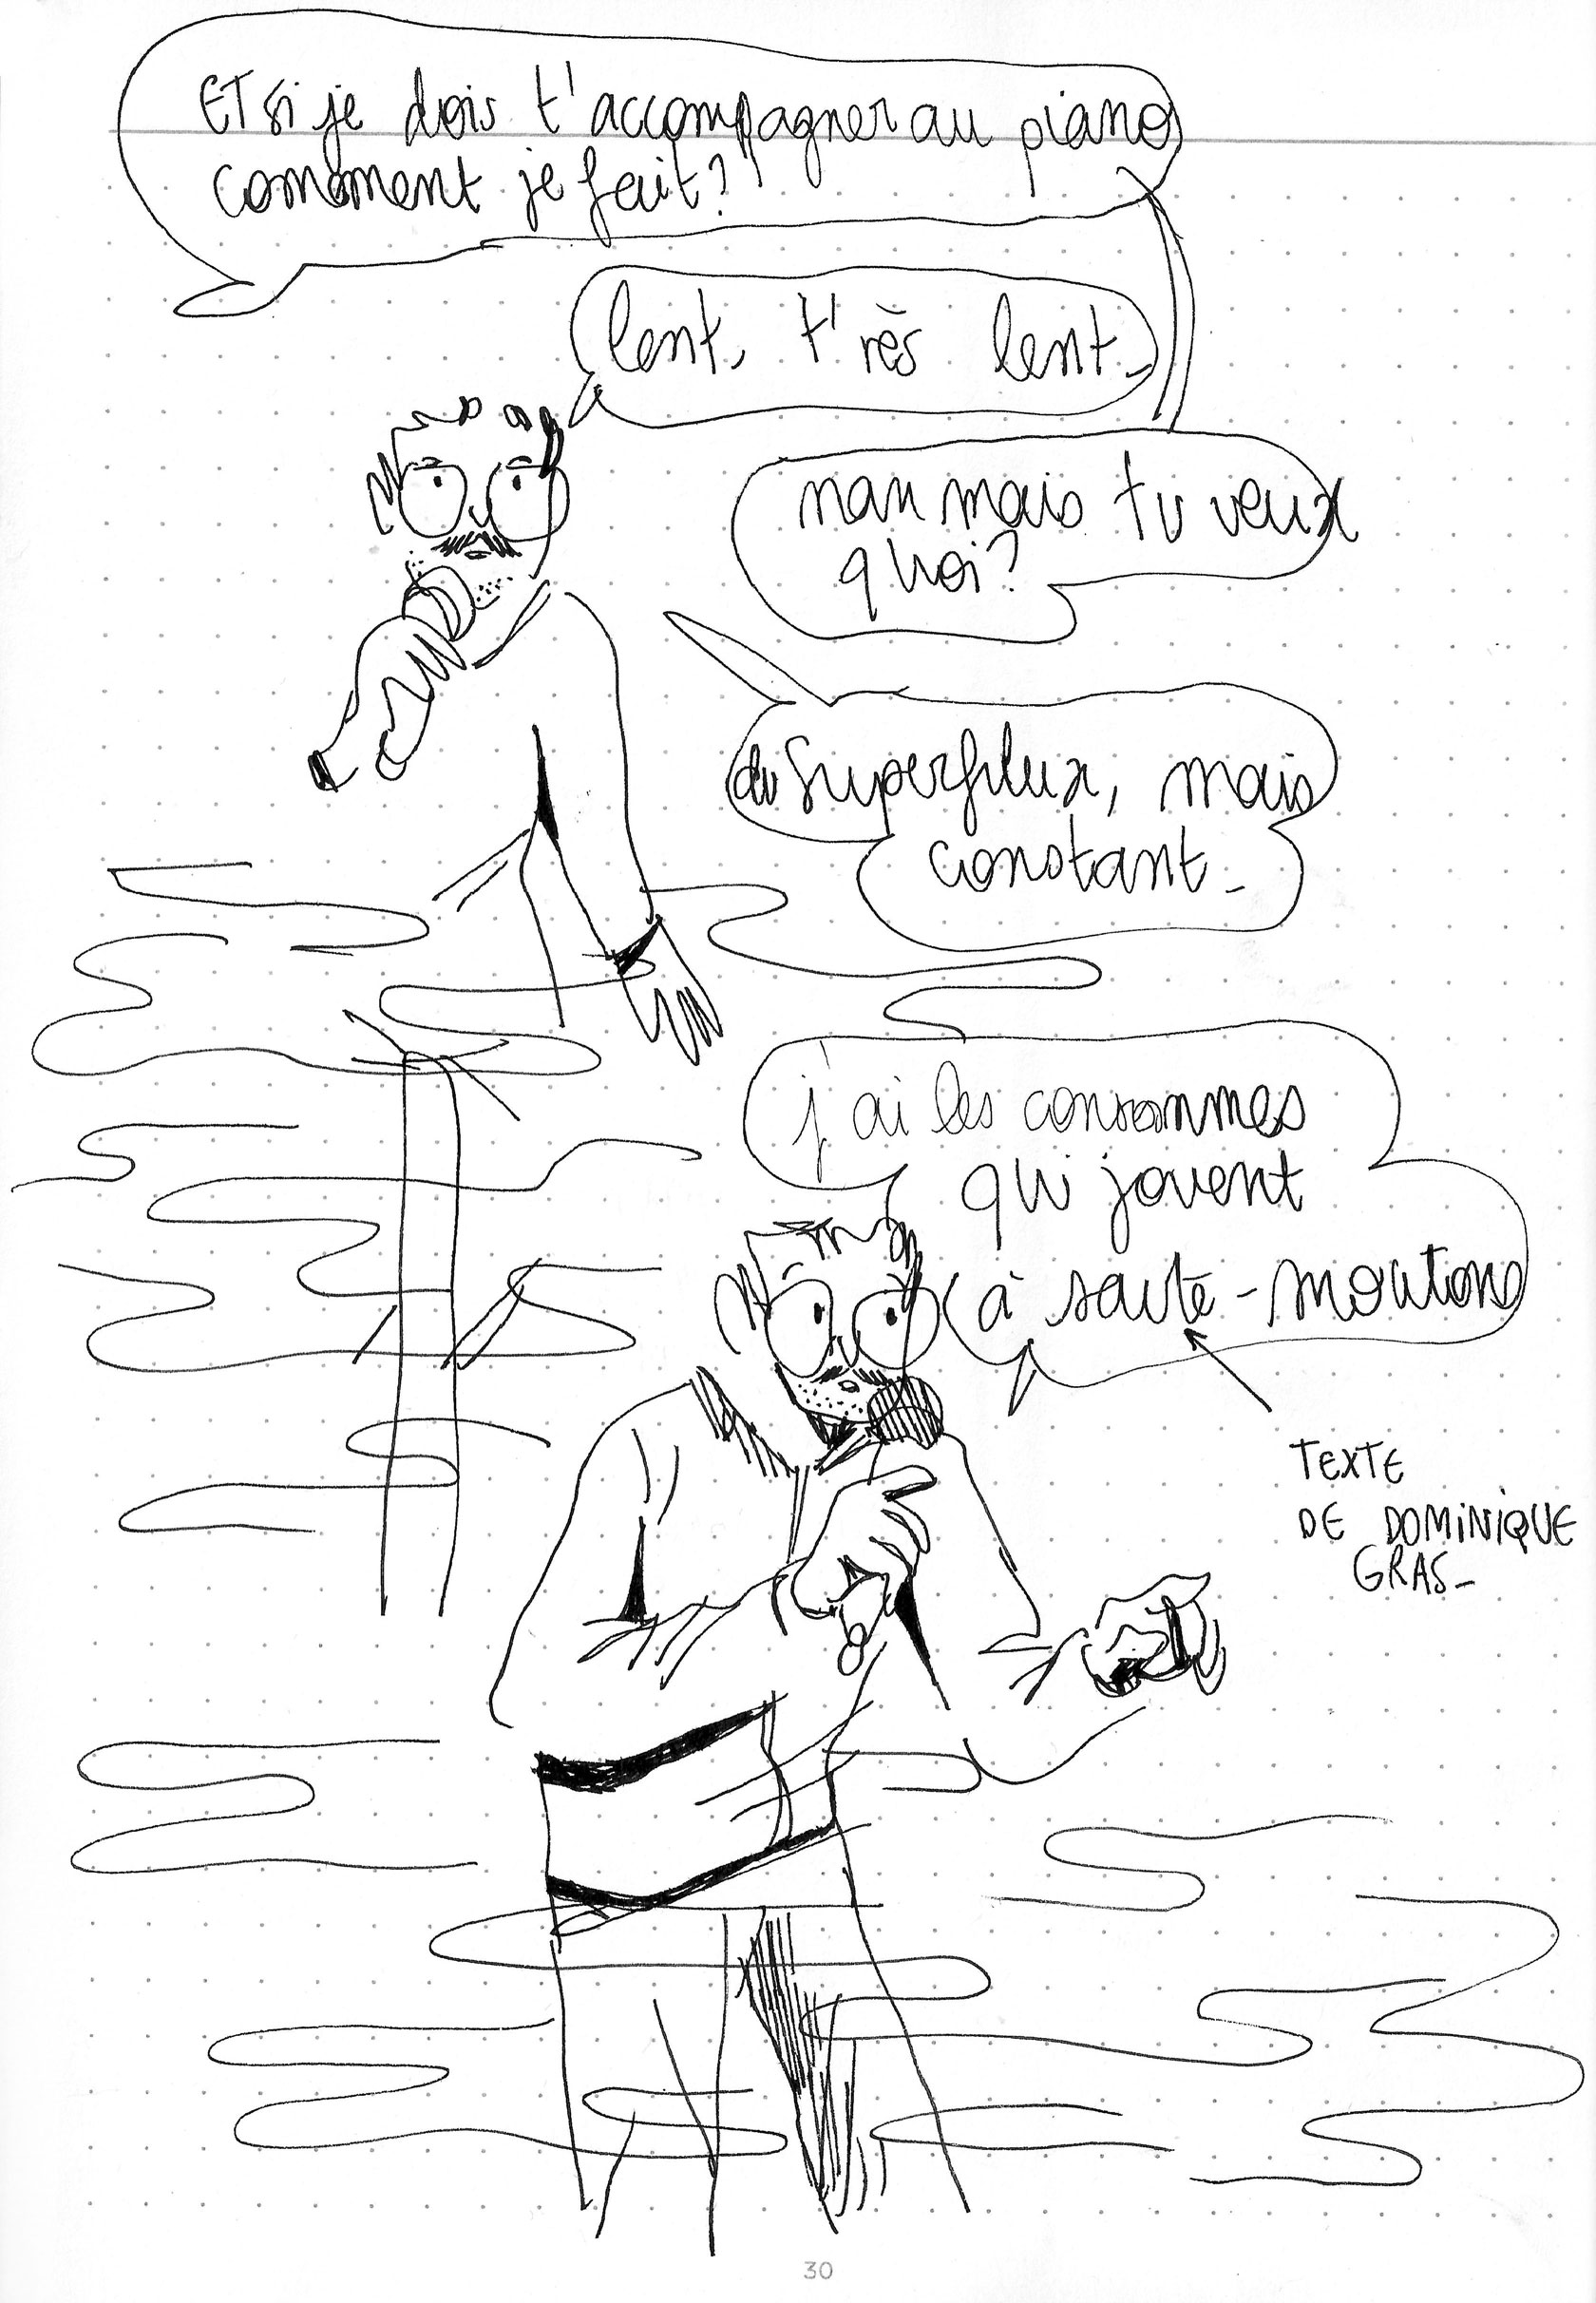 ET si je dois t'accompagner au piano
comment je fait?
lent, t'rès lent_
nan mais tu veux
quoi?
du Superflux, mais
constant_
j'ai les consonnes
qui jouent
à saute-moutons
TEXTE
DE DOMINIQUE
GRAS_
30